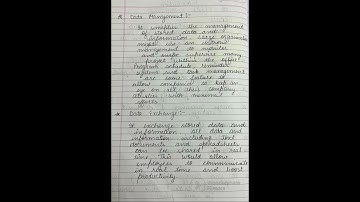 Data Management :-
It simplifies the management
of stored data and
information. Large organization
might use an electronic
management to monitor
and
project within the office
Program schedule, reminder
system and task management
are some feature to
allow companies to keep an
eye on all their company
with minimal
efforts
Data Exchange :-
It exchange stored data and
information. All data and
information including text
documents and spreadsheets
can be shared in real
time. This would allow
employees to communicate
in real time and boost
productivity